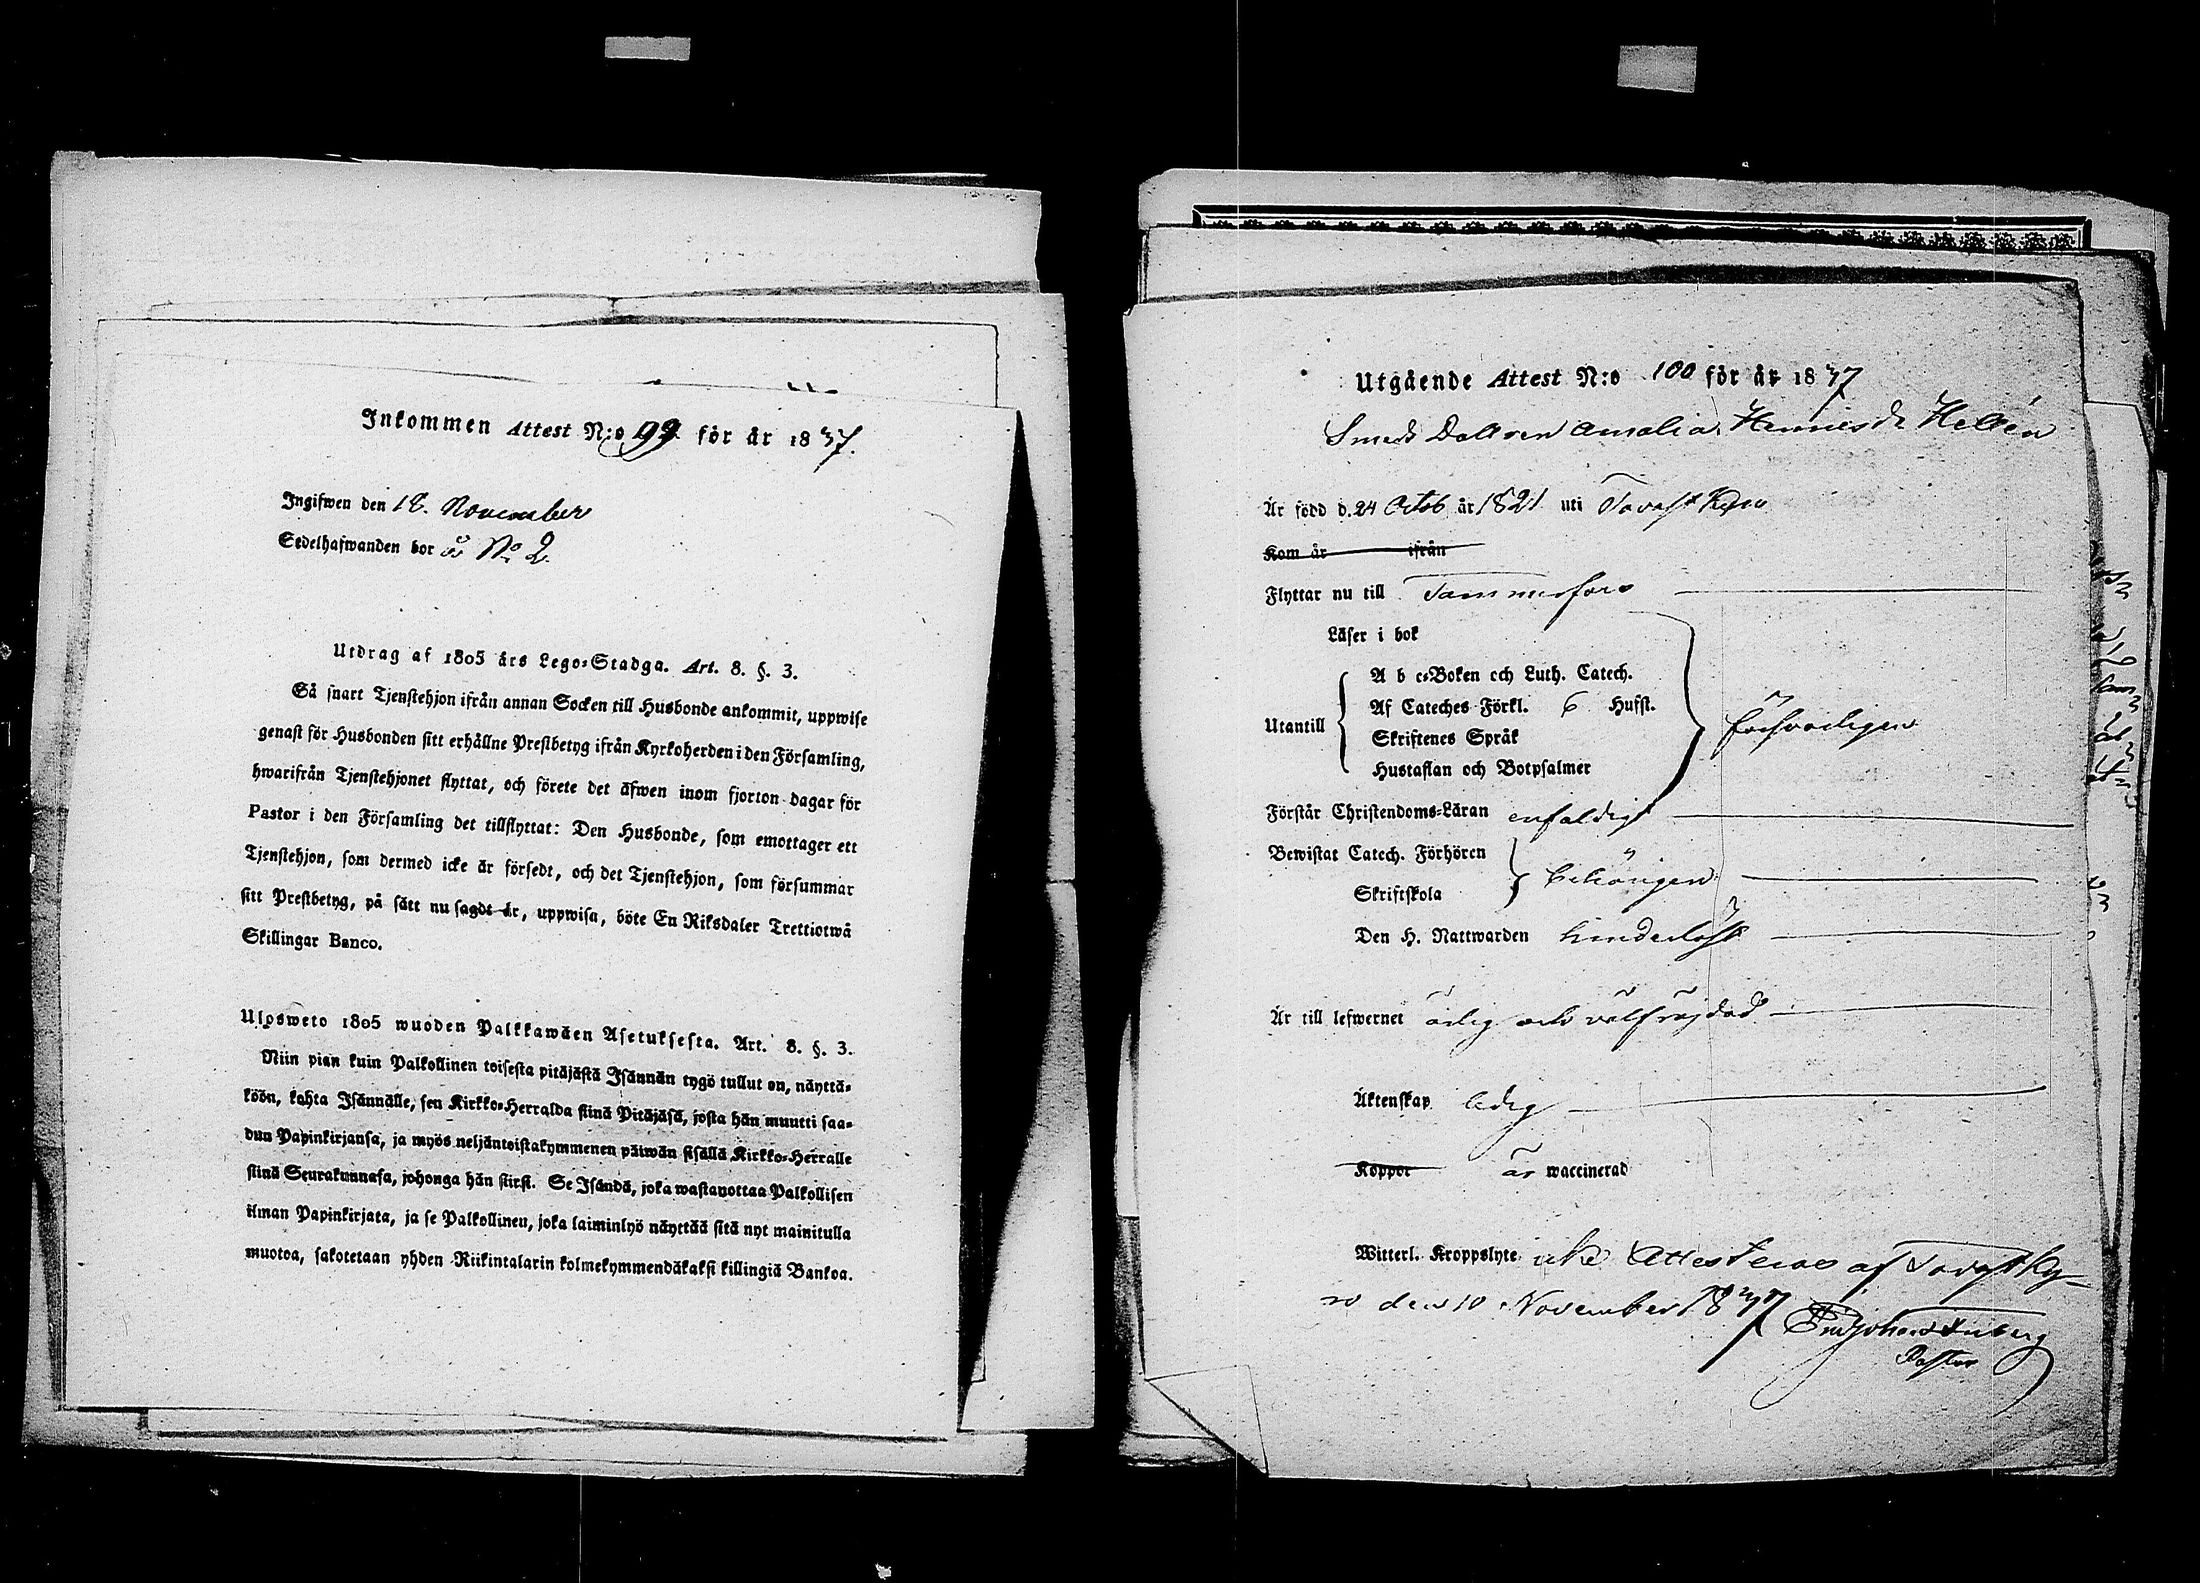 Inkommen Attest N:o 99 för år 1837.
Ingifwen den 18. November
Sedelhafwanden bor å No 2.
Utdrag af 1805 års Lego-Stadga. Art. 8. §. 3.
Så snart Tjenstehjon ifrån annan Socken till Husbonde ankommit, uppwise
genast för Husbonden sitt erhållne Prestbetyg ifrån Kyrkoherden i den Församling,
hwarifrån Tjenstehjonet flyttat, och förete det äfwen inom fjorton dagar för
Pastor i den Församling det tillflyttat: Den Husbonde, som emottager ett
Tjenstehjon, som dermed icke är försedt, och det Tjenstehjon, som försummar
sitt Prestbetyg, på sätt nu sagdt är, uppwisa, böte En Riksdaler Trettiotwå
Skillingar Banco.
Ulosweto 1805 wuoden Palkkawäen Asetuksesta. Art. 8. §. 3.
Niin pian kuin Palkollinen toisesta pitäjästä Isännän tygö tullut on, näyttä-
köön, kohta Isännälle, sen Kirkko-Herralda siinä Pitäjäsä, josta hän muutti saa-
dun Papinkirjansa, ja myös neljäntoistakymmenen päiwän sisällä Kirkko-Herralle
siinä Seurakunnasa, johonga hän siirsi. Se Isändä, joka wastanottaa Palkollisen
ilman Papinkirjata, ja se Palkollinen, joka laiminlyö näyttää sitä nyt mainitulla
muotoa, sakotetaan yhden Riikintalarin kolmekymmendäkaksi killingiä Bankoa.
Utgående Attest N:o 100 för år 1837
Smeds Dottren Amalia Hellén
Är född d. 24 Octob år 1821 uti Tavastkyro
Kom år ifrån
Flyttar nu till Tammerfors
Läser i bok
Utantill
A b c-Boken och Luth. Catech.
Af Cateches Förkl. 6 Hufst.
Skriftenes Språk
Hustaflan och Botpsalmer
försvarligen
Förstår Christendoms-Läran enfaldigt
Bewistat Catech. Förhören
Skriftskola
behörigen
Den H. Nattwarden hinderlöst
Är till lefwernet ärlig och välfräjdad
Äktenskap ledig
Koppor är waccinerad
Witterl. Kroppslyte icke Attesteras af Tavastky-
ro den 10 November 1837
Pastor